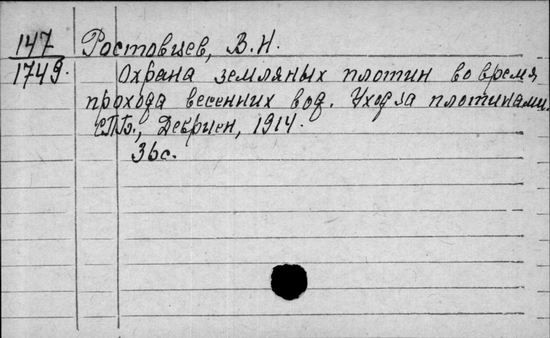 147
1749.
Ростовцев, В.Н.
Охрана земляных плотин во время
прохода весенних вод. Уход за плотинами.
СПБ., Девриен, 1914.
36с.